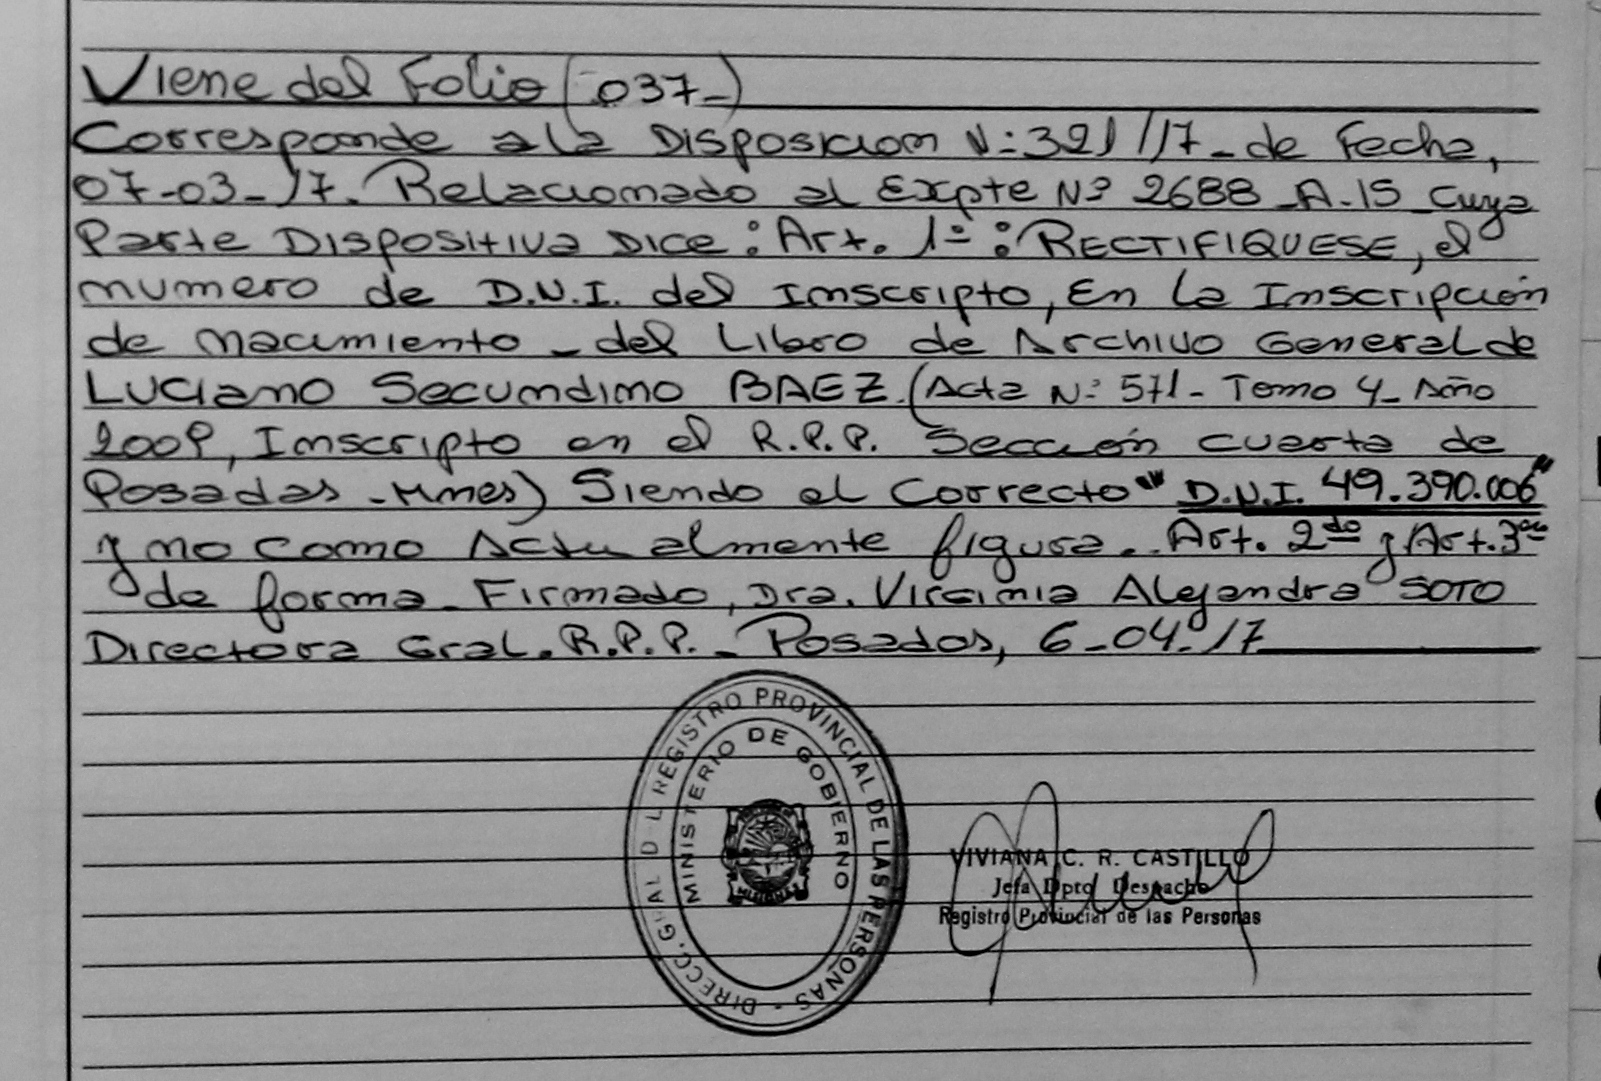 Viene del Folio (-037-)
Corresponde a la Disposicion N: 321//17- de Fecha,
07-03-17. Relacionado al Expte Nº 2688-A-15 Cuya
Parte Dispositiva Dice: Art. 1º: RECTIFIQUESE, el
numero de D.N.I. del Inscripto, En La Inscripción
de nacimiento - del Libro de Archivo General de
LUCiano Secundino BAEZ (Acta N: 571- Tomo 4- Año
2009, Inscripto en el R.P.P. Sección cuarta de
Posadas -Mnes) Siendo el Correcto "D.N.I. 49.390.006"
y no como Actualmente figura. Art. 2do y Art. 3ro
de forma - Firmado, Dra. Virginia Alejandra SOTO
Directora Gral. R.P.P. - Posadas, 6-04-17
DIRECC. GRAL D L REGISTRO PROVINCIAL DE LAS PERSONAS -
MINISTERIO DE GOBIERNO
MISIONES
VIVIANA C. R. CASTILLO
Jefa Dpto Despacho
Registro Provincial de las Personas